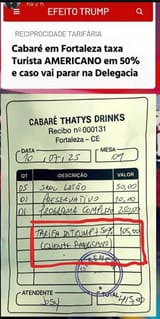 há 2 h
EFEITO TRUMP
RECIPROCIDADE TARIFÁRIA
Cabaré em Fortaleza taxa
Turista AMERICANO em 50%
e caso vai parar na Delegacia
CABARÉ THATYS DRINKS
Recibo nº 000131
Fortaleza - CE
DATA MESA
10, 07, 25 09
QT DESCRIÇÃO VALOR
05 SKOL LATÃO 50,00
01 PRESERVATIVO 10,00
01 PROGRAMA COMPLETO 250,00
TARIFA D. TRUMP 50% 105,00
(CLIENTE AMERICANO)
GERÊNCIA
ATENDENTE TOTAL
415,00